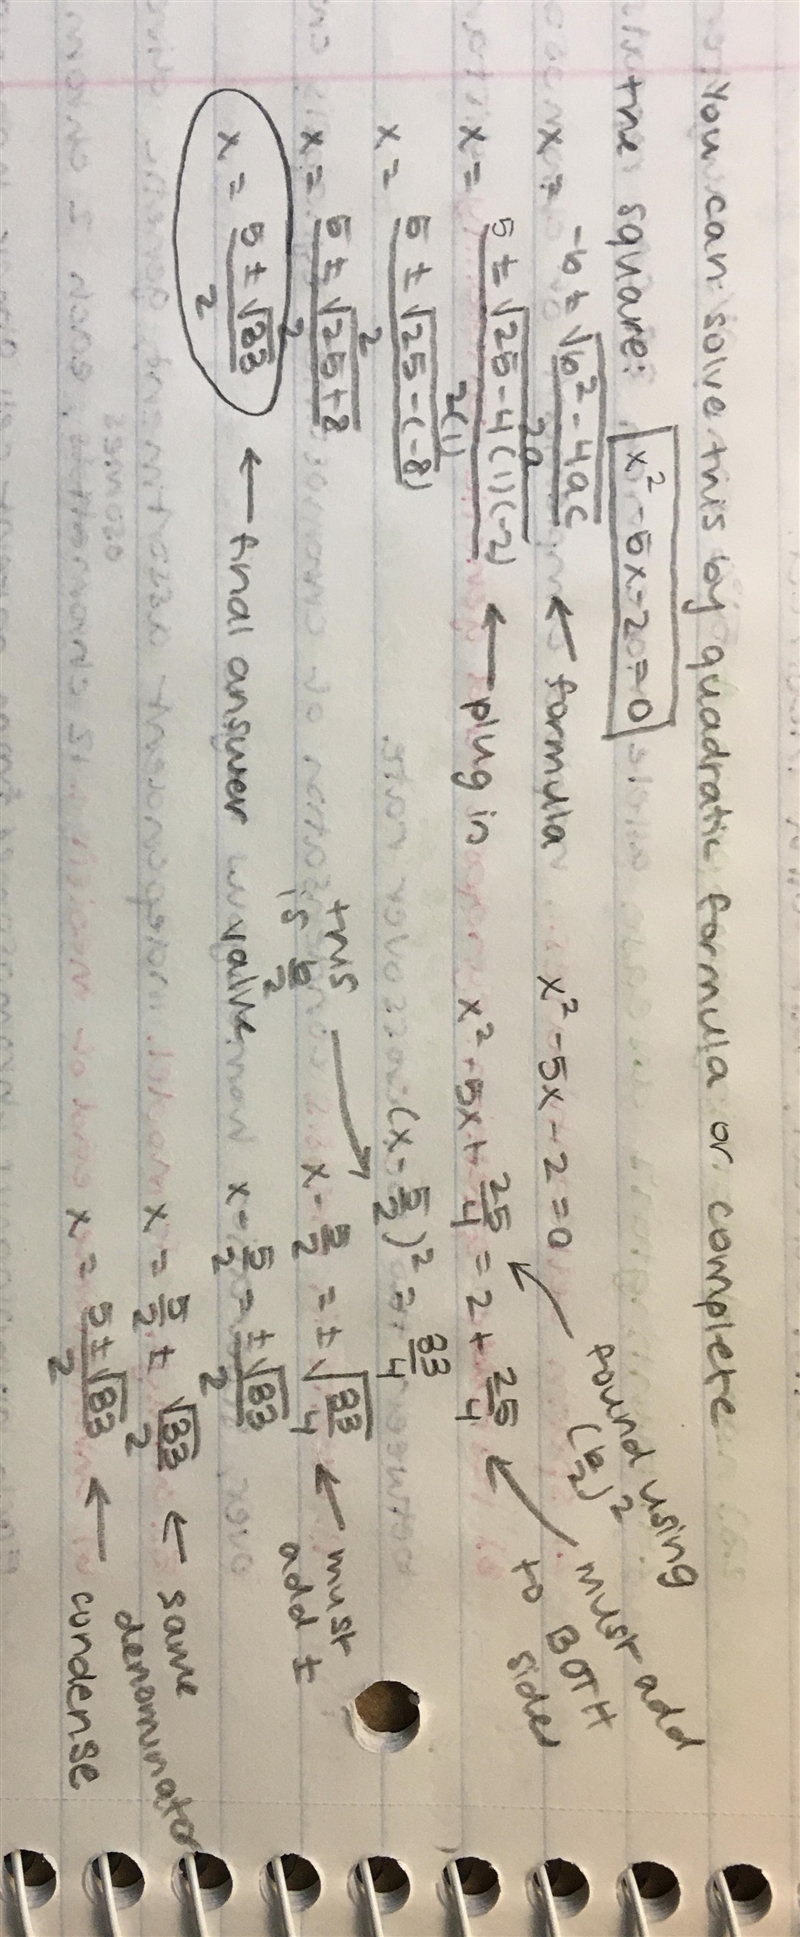 You can solve this by quadratic formula or complete
the square: x² - 5x - 2 = 0
x = -b ± √b² - 4ac / 2a ← formula
x = 5 ± √25 - 4(1)(-2) / 2(1) ← plug in
x = 5 ± √25 - (-8) / 2
x = 5 ± √25 + 8 / 2
x = 5 ± √33 / 2 ← final answer
x² - 5x - 2 = 0
found using (b/2)²
x² - 5x + 25/4 = 2 + 25/4
must add
to BOTH
sides
this
is b/2
(x - 5/2)² = 33/4
x - 5/2 = ± √33/4 ← must
add ±
x - 5/2 = ± √33 / 2
x = 5/2 ± √33 / 2 ← same
denominator
x = 5 ± √33 / 2 ← condense